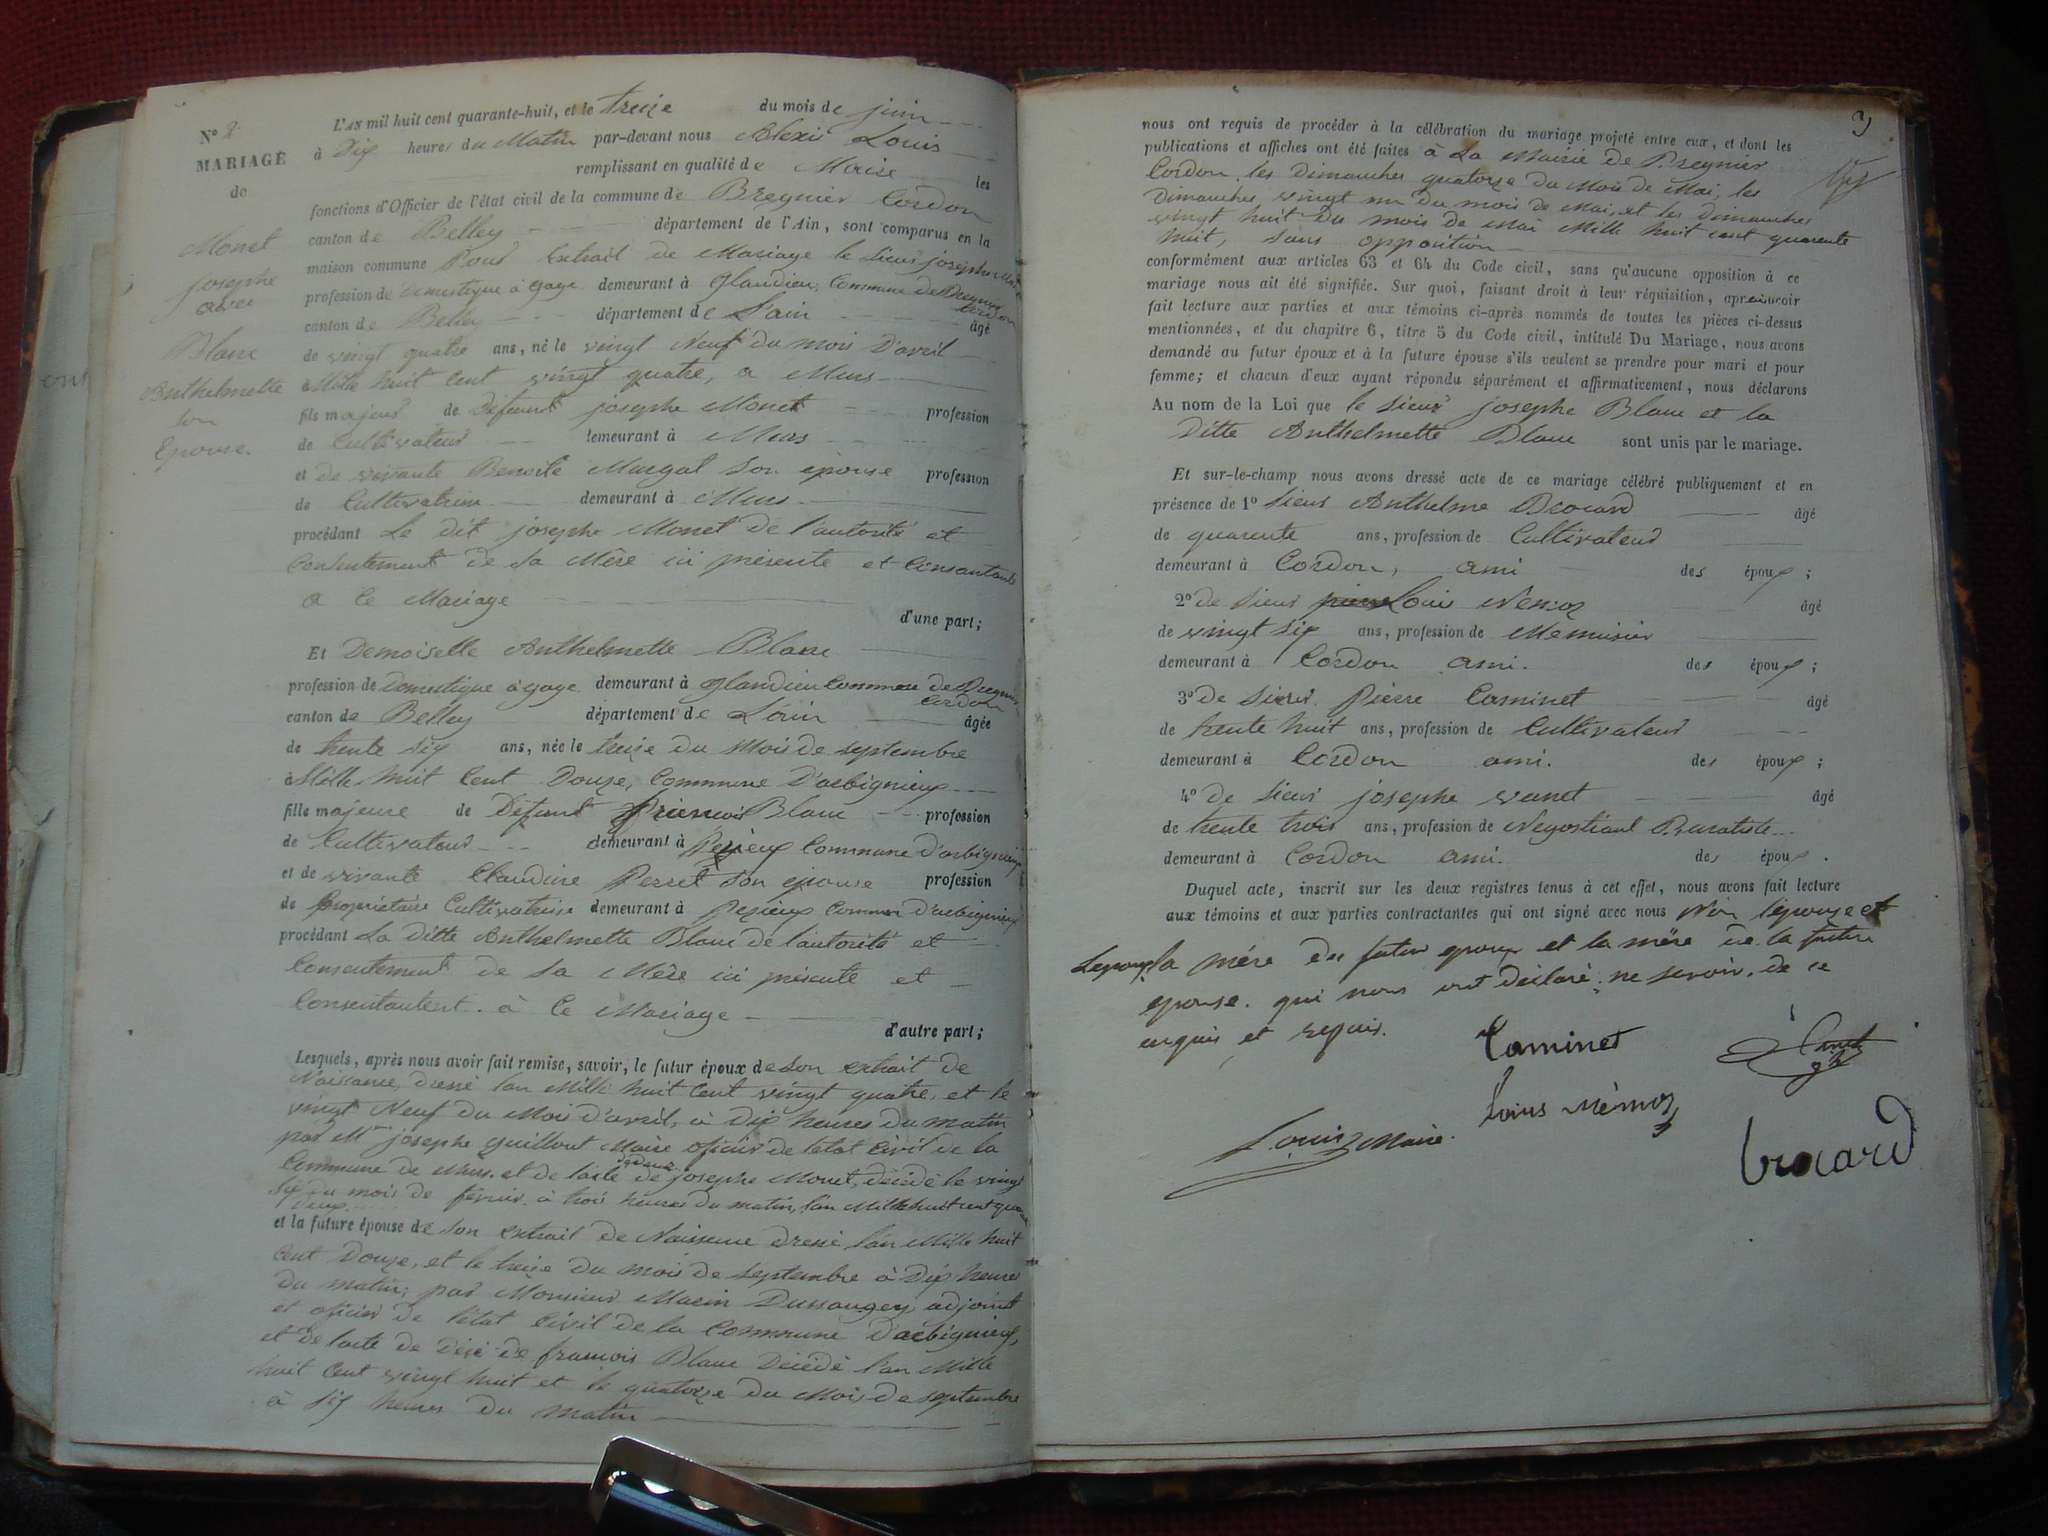 N° 2
MARIAGE
de
Monet
Josephe
avec
Blanc
Anthelmette
son
Epouse.
L'AN mil huit cent quarante-huit, et le treize du mois de juin
à Dix heures du Matin par-devant nous Alexis Louis
remplissant en qualité de Maire les
fonctions d'Officier de l'état civil de la commune de Bregnier Cordon
canton de Belley département de l'Ain, sont comparus en la
maison commune Pour Extrait de Mariage le Sieur josephe
profession de Domestique à gage demeurant à Glandieu, Commune de Bregnier
Cordon
canton de Belley département de L'ain âgé
de vingt quatre ans, né le vingt Neuf du mois D'avril
à Mille huit Cent vingt quatre, a Murs
fils majeur de Défeunt josephe Monet profession
de Cultivateur demeurant à Murs
et de vivante Benoite Margat son épouse profession
de Cultivatrice demeurant à Murs
procédant Le Dit josephe Monet de l'autorité et
Consentement de sa Mère ici présente et Consantante
a Ce Mariage
d'une part;
Et Demoiselle Anthelmette Blanc
profession de Domestique à gage demeurant à Glandieu Commune de Bregnier
Cordon
canton de Belley département de L'ain âgée
de trente six ans, née le treize du Mois de septembre
à Mille huit Cent Douze, Commune D'arbignieux
fille majeure de Défunt Blanc profession
de Cultivateur demeurant à Pezieux Commune D'arbignieux
et de vivante Claudine Perret son epouse profession
de Propriétaire Cultivatrise demeurant à Pezieux Commun D'arbignieux
procédant La Ditte Anthelmette Blanc de l'autorité et
Consentement de sa Mère ici présente et
Consentantent à Ce Mariage
d'autre part;
Lesquels, après nous avoir fait remise, savoir, le futur époux de son extrait de
Naissance, dressé l'an Mille huit Cent vingt quatre, et le
vingt Neuf du Mois D'avril, à Dix heures du matin
par Mr josephe Guillout Maire oficier de l'etat Civil de la
Commune de Murs, et de l'acte de josephe Monet, décédé le vingt
six du mois de février à trois heures du matin, l'an Mille huit cent quarante
deux
et la future épouse de son extrait de Naissance dressé l'an Mille huit
Cent Douze, et le treize du mois de septembre à Dix heures
du matin; par Monsieur Marin Dussaugey adjoint
et oficier de l'état Civil de la Commune D'arbignieux,
et de l'acte de Décé de francois Blanc Décédé l'an Mille
huit Cent vingt huit et le quatorze du Mois de septembre
à six heures du matin
3
nous ont requis de procéder à la célébration du mariage projeté entre eux, et dont les
publications et affiches ont été faites à La Mairie de Bregnier
Cordon, les Dimanches quatorze du Mois de Mai, les
Dimanches, vingt un du mois de Mai, et les Dimanches
vingt huit du mois de Mai Mille huit cent quarente
huit, sans opposition
conformément aux articles 63 et 64 du Code civil, sans qu'aucune opposition à ce
mariage nous ait été signifiée. Sur quoi, faisant droit à leur réquisition, après avoir
fait lecture aux parties et aux témoins ci-après nommés de toutes les pièces ci-dessus
mentionnées, et du chapitre 6, titre 5 du Code civil, intitulé Du Mariage, nous avons
demandé au futur époux et à la future épouse s'ils veulent se prendre pour mari et pour
femme; et chacun d'eux ayant répondu séparément et affirmativement, nous déclarons
Au nom de la Loi que le Sieur josephe Blanc et la
Ditte Anthelmette Blanc sont unis par le mariage.
Et sur-le-champ nous avons dressé acte de ce mariage célébré publiquement et en
présence de 1° Sieur Anthelme Brocard âgé
de quarente ans, profession de Cultivateur
demeurant à Cordon, ami des époux;
2° de Sieur Louis Némoz âgé
de vingt six ans, profession de Menuisier
demeurant à Cordon ami. des époux;
3° de Sieur Pierre Caminet âgé
de trente huit ans, profession de Cultivateur
demeurant à Cordon ami. des époux;
4° de Sieur josephe âgé
de trente trois ans, profession de Negostiant
demeurant à Cordon ami. des époux.
Duquel acte, inscrit sur les deux registres tenus à cet effet, nous avons fait lecture
aux témoins et aux parties contractantes qui ont signé avec nous Non l'epouze et
Lepoux la mère du futur epoux et la mère de la future
epouse. qui nous ont déclaré ne savoir. de ce
enquis et requis.
Caminet
Louis Némoz
Louis Maire.
brocard